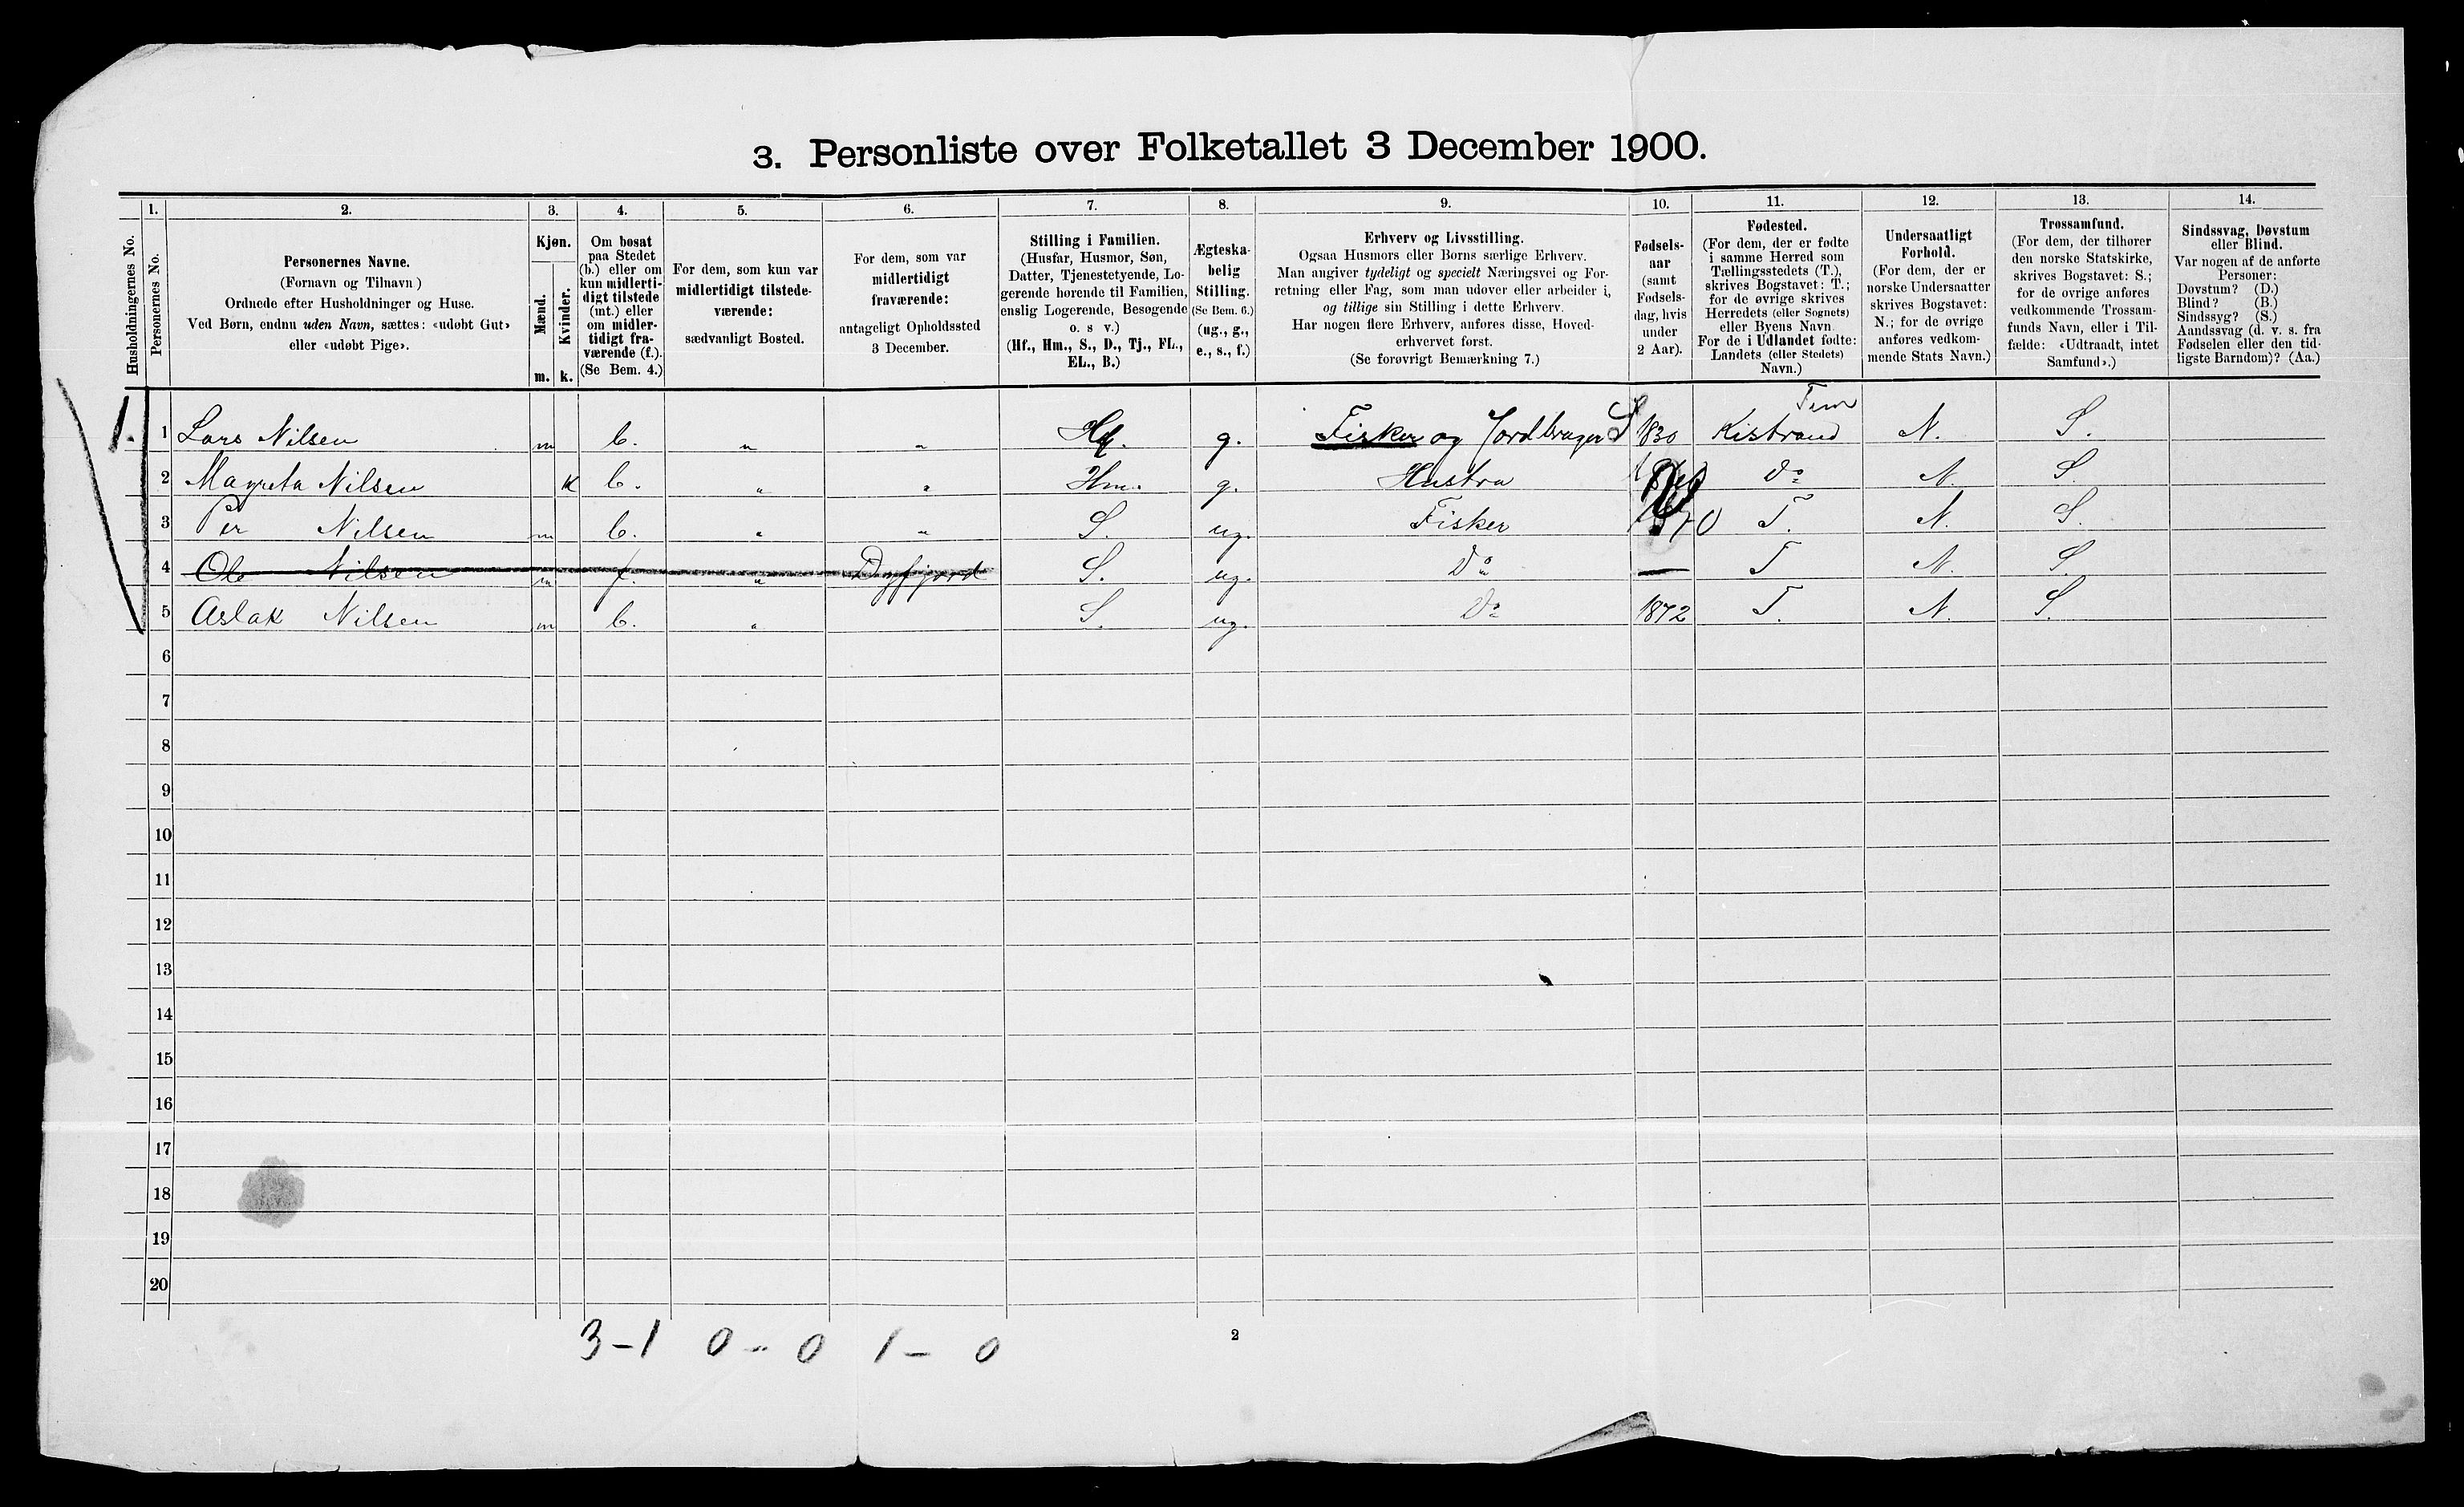 3. Personliste over Folketallet 3 December 1900.
Husholdningernes No.
1.
Personernes No.
2.
Personernes Navne.
(Fornavn og Tilnavn)
Ordnede efter Husholdninger og Huse.
Ved Børn, endnu uden Navn, sættes: «udøbt Gut»
eller «udøbt Pige».
3.
Kjøn.
Mænd.
Kvinder.
m. k.
4.
Om bosat
paa Stedet
(b.) eller om
kun midlerti-
digt tilstede
(mt.) eller
om midler-
tidigt fra-
værende (f.).
(Se Bem. 4.)
5.
For dem, som kun var
midlertidigt tilstede-
værende:
sædvanligt Bosted.
6.
For dem, som var
midlertidigt
fraværende:
antageligt Opholdssted
3 December.
7.
Stilling i Familien.
(Husfar, Husmor, Søn,
Datter, Tjenestetyende, Lo-
gerende hørende til Familien,
enslig Logerende, Besøgende
o. s v.)
(Hf., Hm., S., D., Tj., FL.,
EL., B.)
8.
Ægteska-
belig
Stilling.
(Se Bem. 6.)
(ug., g.,
e., s., f.)
9.
Erhverv og Livsstilling.
Ogsaa Husmors eller Børns særlige Erhverv.
Man angiver tydeligt og specielt Næringsvei og For-
retning eller Fag, som man udøver eller arbeider i,
og tillige sin Stilling i dette Erhverv.
Har nogen flere Erhverv, anføres disse, Hoved-
erhvervet først.
(Se forøvrigt Bemærkning 7.)
10.
Fødsels-
aar
(samt
Fødsels-
dag, hvis
under
2 Aar).
11.
Fødested.
(For dem, der er fødte
i samme Herred som
Tællingsstedets (T.),
skrives Bogstavet: T.;
for de øvrige skrives
Herredets (eller Sognets)
eller Byens Navn.
For de i Udlandet fødte:
Landets (eller Stedets)
Navn.)
12.
Undersaatligt
Forhold.
(For dem, der er
norske Undersaatter
skrives Bogstavet:
N.; for de øvrige
anføres vedkom-
mende Stats Navn.)
13.
Trossamfund.
(For dem, der tilhører
den norske Statskirke,
skrives Bogstavet: S.;
for de øvrige anføres
vedkommende Trossam-
funds Navn, eller i Til-
fælde: «Udtraadt, intet
Samfund».)
14.
Sindssvag, Døvstum
eller Blind.
Var nogen af de anførte
Personer:
Døvstum? (D.)
Blind? (B.)
Sindssyg? (S.)
Aandssvag (d. v. s. fra
Fødselen eller den tid-
ligste Barndom)? (Aa.)
1. 1 Lars Nilsen m b. " " Hf. g. Fisker og Jordbruger S 1830 Kistrand N. S.
2 Magreta Nilsen k b. " " Hm. g. Hustru Do N. S.
3 Per Nilsen m b. " " S. ug. Fisker T. N. S.
4 Ole Nilsen m f. " Dyfjord S. ug. Do — T N. S.
5 Aslak Nilsen m b. " S. ug. Do 1872 T. N. S.
6
7
8
9
10
11
12
13
14
15
16
17
18
19
20
3-1 0 " 0 1 - 0
2